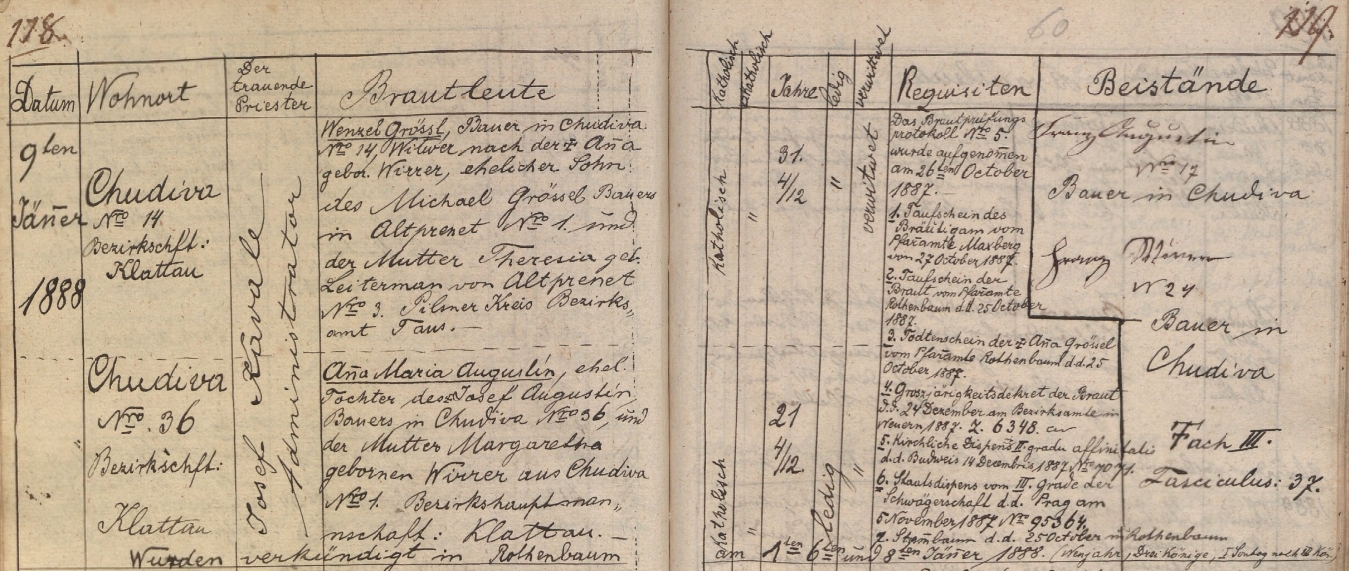 118.
Datum
Wohnort
Der
trauende
Priester
Brautleute
9ten
Jäner
1888
Chudiva
Nro 14
Bezirkschft:
Klattau
Josef Kavale
Administrator
Wenzel Grössl, Bauer in Chudiva
Nro 14, Witwer nach der ✝ Aña
gebor. Wirrer, ehelicher Sohn
des Michael Grössel Bauers
in Altprenet Nro 1. und
der Mutter Theresia geb.
Leiterman von Altprenet
Nro 3. Pilsner Kreis Bezirks„
amt Taus.—
Chudiva
Nro. 36
Bezirkschft:
Klattau
Aña Maria Augustin, ehel.
Tochter des Josef Augustin
Bauers in Chudiva Nro 36, und
der Mutter Margaretha
gebornen Wirrer aus Chudiva
Nro 1. Bezirkshauptman„
nschaft: Klattau.—
60
119.
Katholisch
Akatholisch
Jahre
ledig
verwitwet
Requisiten
Beistände
Katholisch
"
31.
4/12
"
verwitwet
Das Brautprüfungs
protokoll No 5.
wurde aufgenomen
am 26ten October
1887.—
1. Taufschein des
Bräutigam vom
Pfaramte Maxberg
von 27 October 1887.
2. Taufschein der
Braut vom Pfaramte
Rothenbaum d.d. 25 October
1887.
3. Todtenschein der ✝ Aña Grössel
vom Pfaramte Rothenbaum d.d. 25
October 1887.
4. Groszjärigkeitsdekret der Braut
d.d. 24 Dezember am Bezirksamte in
Neuern 1887. Z. 6348.
5. Kirchliche Dispens II. gradu affinitatis
d.d. Budweis 14 Decembris 1887 No 7071.
6. Staatsdispens vom III. Grade der
Schwägerschaft d.d. Prag am
5 November 1887 No 95364.
7. Stambaum d.d. 25 October in Rothenbaum
Katholisch
"
21
4/12
Ledig
"
Franz Augustin
Nro 17
Bauer in Chudiva
Franz
N 24
Bauer in
Chudiva
Fach III.
Fasciculus: 37.
Wurden verkündigt in Rothenbaum am 1ten 6ten und 8ten Jäner 1888. (Neujahr, Drei Könige, I Sontag nach III Kön.